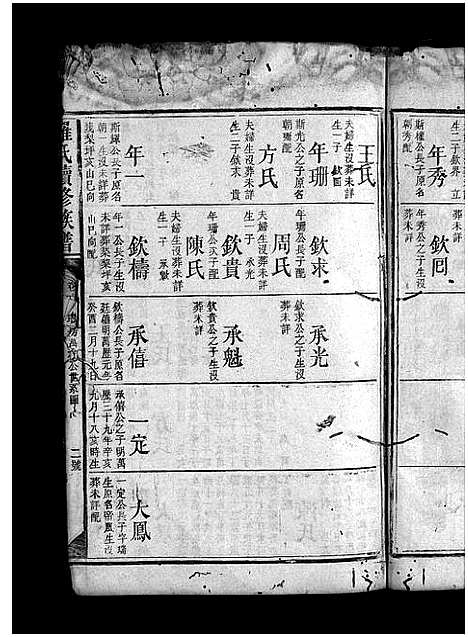 年秀
斯權公長子原名
朝秀夫婦生沒未詳
欽囘
年秀公之子生沒
未詳
王氏
夫婦生沒葬未詳
生一子 欽囘
年珊
斯光公之子原名
朝珊配
方氏
夫婦生沒葬未詳
生二子欽求 貴
年一
斯輝公長子原名
朝一生沒未詳葬
梨坪亥山巳向
欽求
年珊公長子配
周氏
夫婦生沒葬未詳
生一子 承光
欽貴
年珊公次子配
陳氏
夫婦生沒葬未詳
生一子 承魁
欽檮
年一公長子生沒
未詳葬梨梨坪亥
山巳向配
承光
欽求公之子生沒
葬未詳
承魁
欽貴公之子生沒
葬未詳
承僖
欽檮公長子原名
廷僖明萬歷元年
癸酉二月十九日
一定
承僖公之子明萬
歷三十九年辛亥
九月十八亥時生
大鳳
一定公長子字瑞
生沒
葬未詳配
羅氏續修族譜
二號